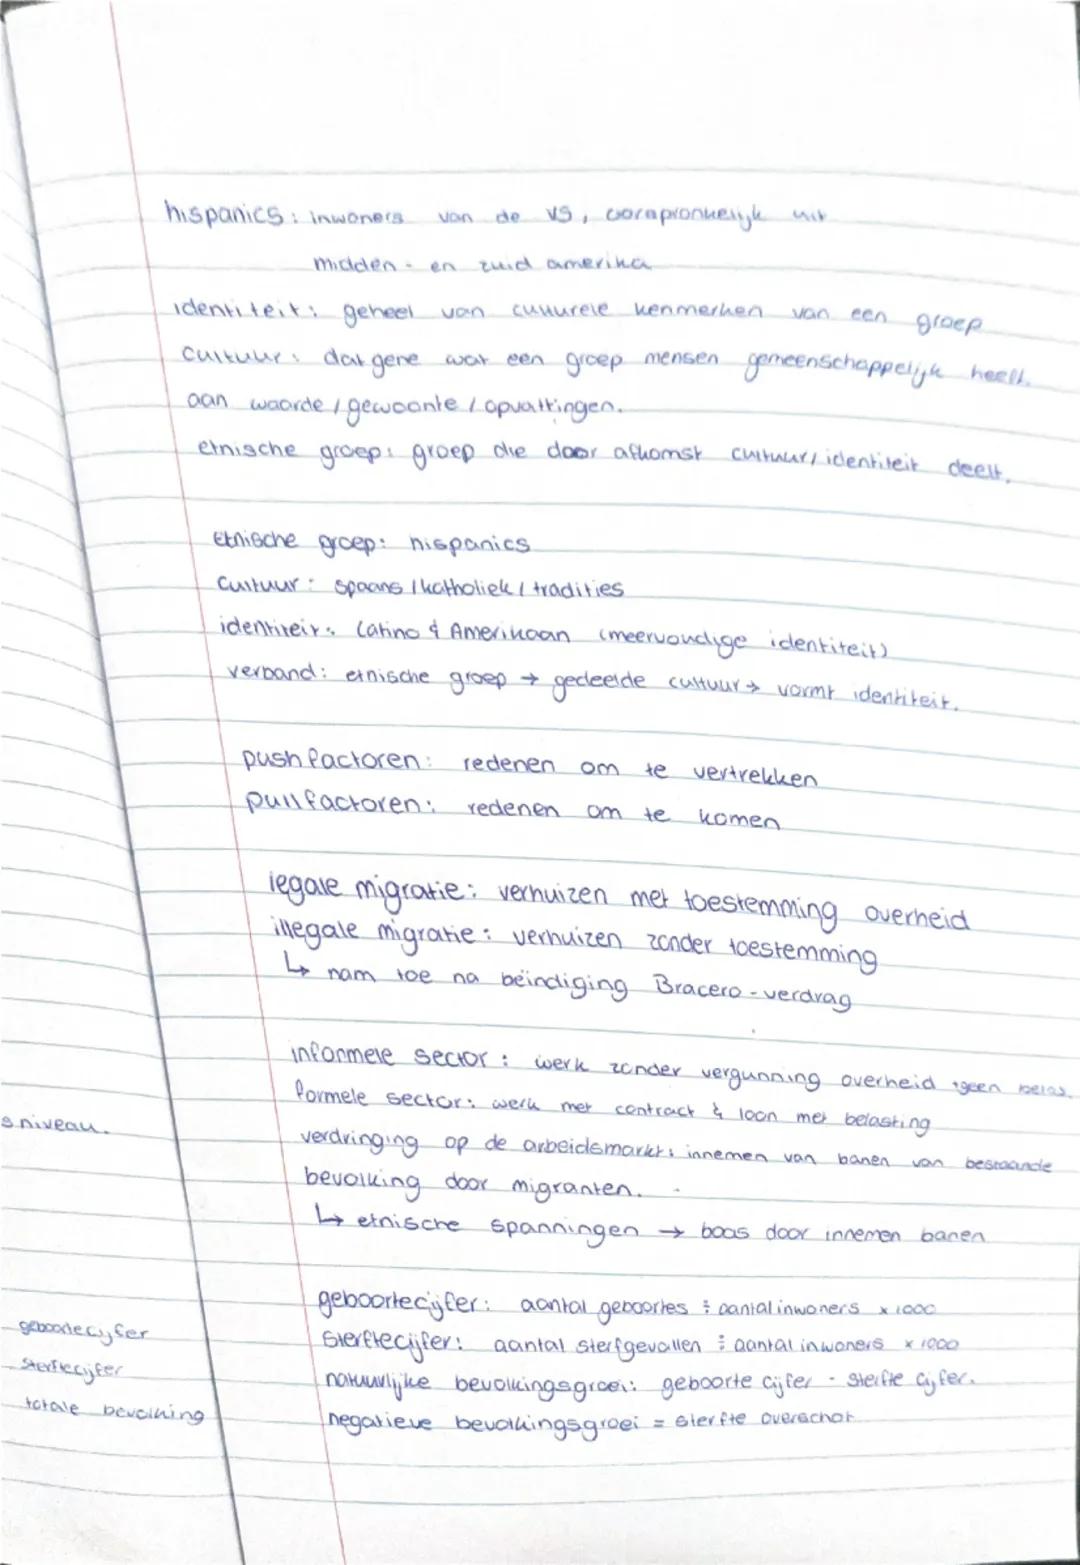 hispanics: inwoners van de VS, oorspronkelijk uit
midden- en zuid amerika
identiteit: geheel van culturele kenmerken van een groep
cultuur: dat gene wat een groep mensen gemeenschappelijk heeft
aan waarde / gewoonte / opvattingen.
etnische groep: groep die door afkomst cultuur/identiteit deelt.
Etnische groep: hispanics
Cultuur: Spaans / katholiek / tradities
identiteit: Latino & Amerikaan (meervoudige identiteit)
verband: etnische groep → gedeelde cultuur → vormt identiteit.
pushfactoren: redenen om te vertrekken
pullfactoren: redenen om te komen
legale migratie: verhuizen met toestemming overheid
illegale migratie: verhuizen zonder toestemming
↳ nam toe na beïndiging Bracero-verdrag
informele sector: werk zonder vergunning overheid +geen belas.
formele sector: werk met contract & loon met belasting
s niveau.
verdringing op de arbeidsmarkt: innemen van banen van bestaande
bevolking door migranten.
↳ etnische spanningen → boos door innemen banen
geboortecijfer: aantal geboortes ÷ aantal inwoners x 1000
sterftecijfer: aantal sterfgevallen ÷ aantal inwoners x 1000
natuurlijke bevolkingsgroei: geboorte cijfer - sterfte cijfer.
negatieve bevolkingsgroei = sterfte overschot
geboortecijfer
sterftecijfer
totale bevolking